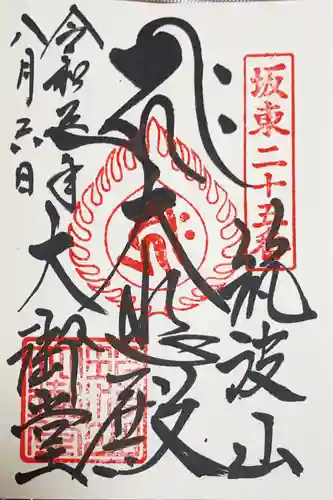 坂東二十五番
筑波山
大悲殿
大御堂
令和
八月六日